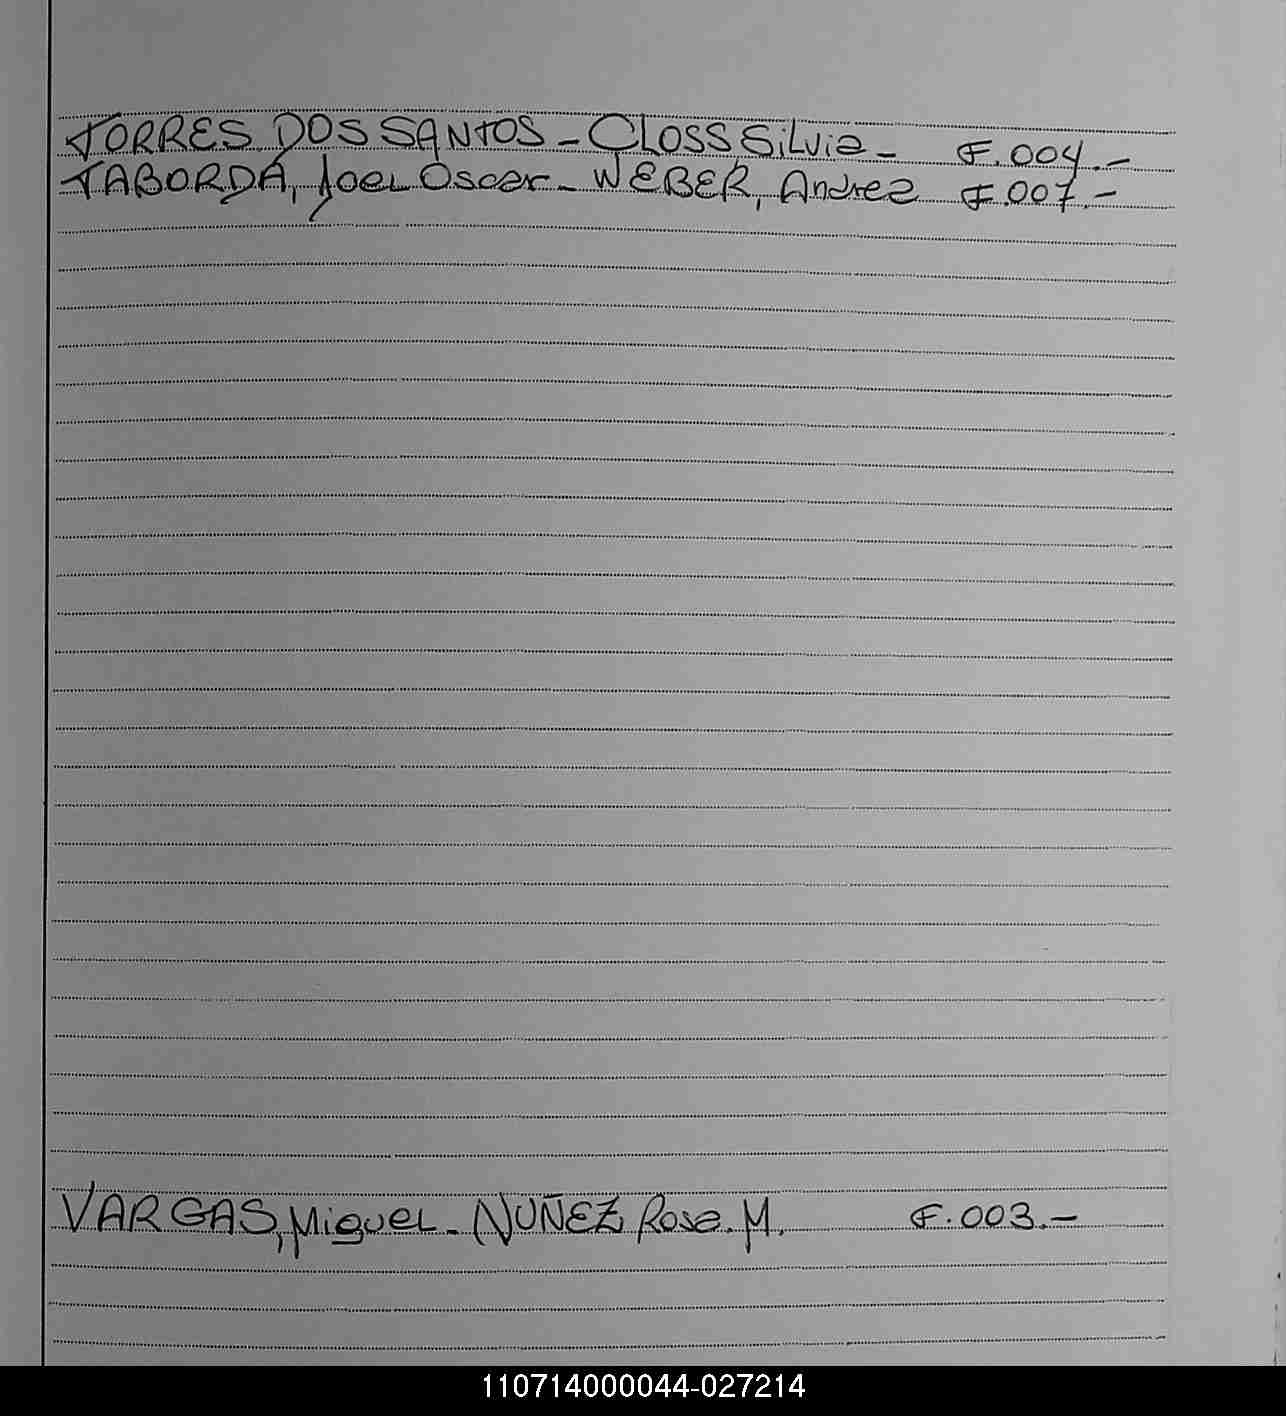 TORRES DOS SANTOS - CLOSS SiLvia - F. 004.-
TABORDA, Joel Oscar - WEBER, Andrea F.007.-
VARGAS, Miguel - NUÑEZ Rosa. M. F. 003.-
110714000044-027214